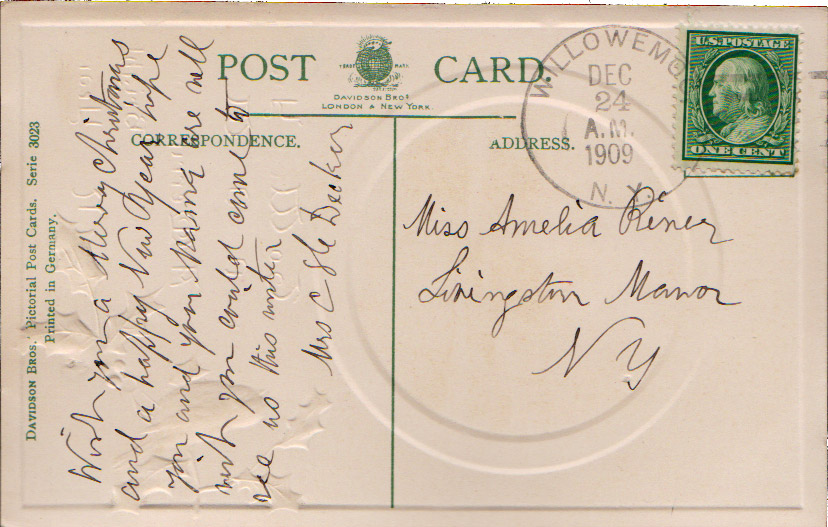 POST CARD.
TRADE MARK
DAVIDSON BROS
LONDON & NEW YORK.
CORRESPONDENCE.
ADDRESS.
WILLOWEMO
DEC
24
A.M.
1909
N. Y.
U.S. POSTAGE
ONE CENT
Miss Amelia
Livingston Manor
N Y
Wish you a Merry Christmas
and a happy New Year hope
you and yours are well
wish you could come to
see us this winter
Mrs C Decker
DAVIDSON BROS.' Pictorial Post Cards. Serie 3023
Printed in Germany.